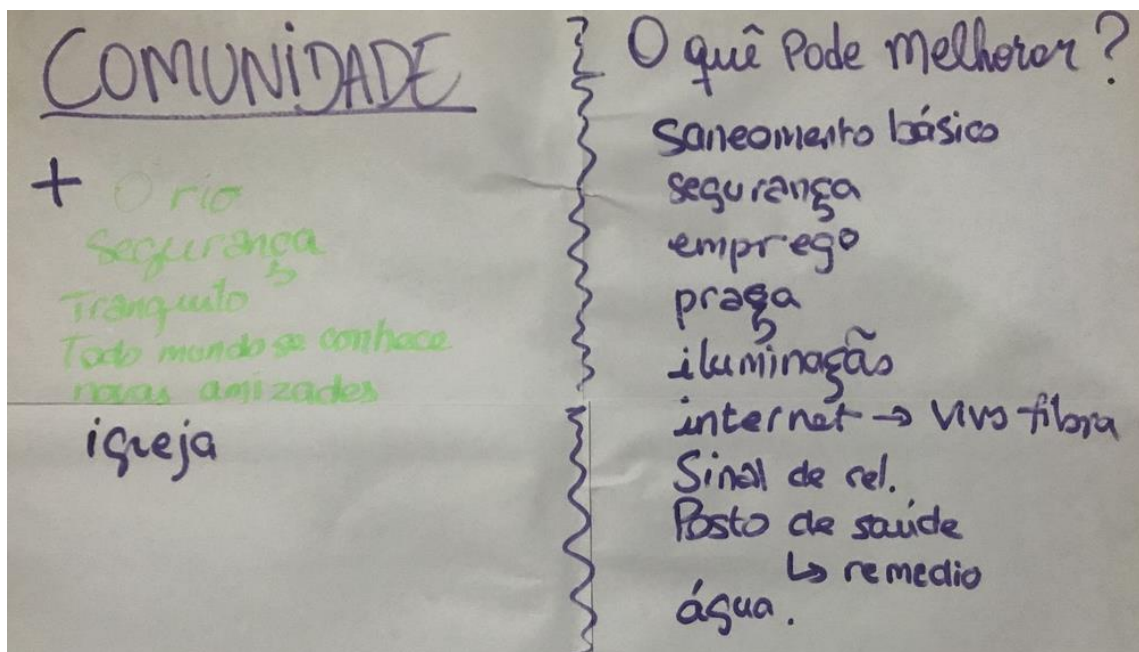 COMUNIDADE
+ O rio
Segurança
Tranquilo
Todo mundo se conhece
novas amizades
igreja
O quê Pode Melhorar?
Saneamento básico
segurança
emprego
praça
iluminação
internet → Vivo fibra
Sinal de cel.
Posto de saúde
↳ remedio
água.